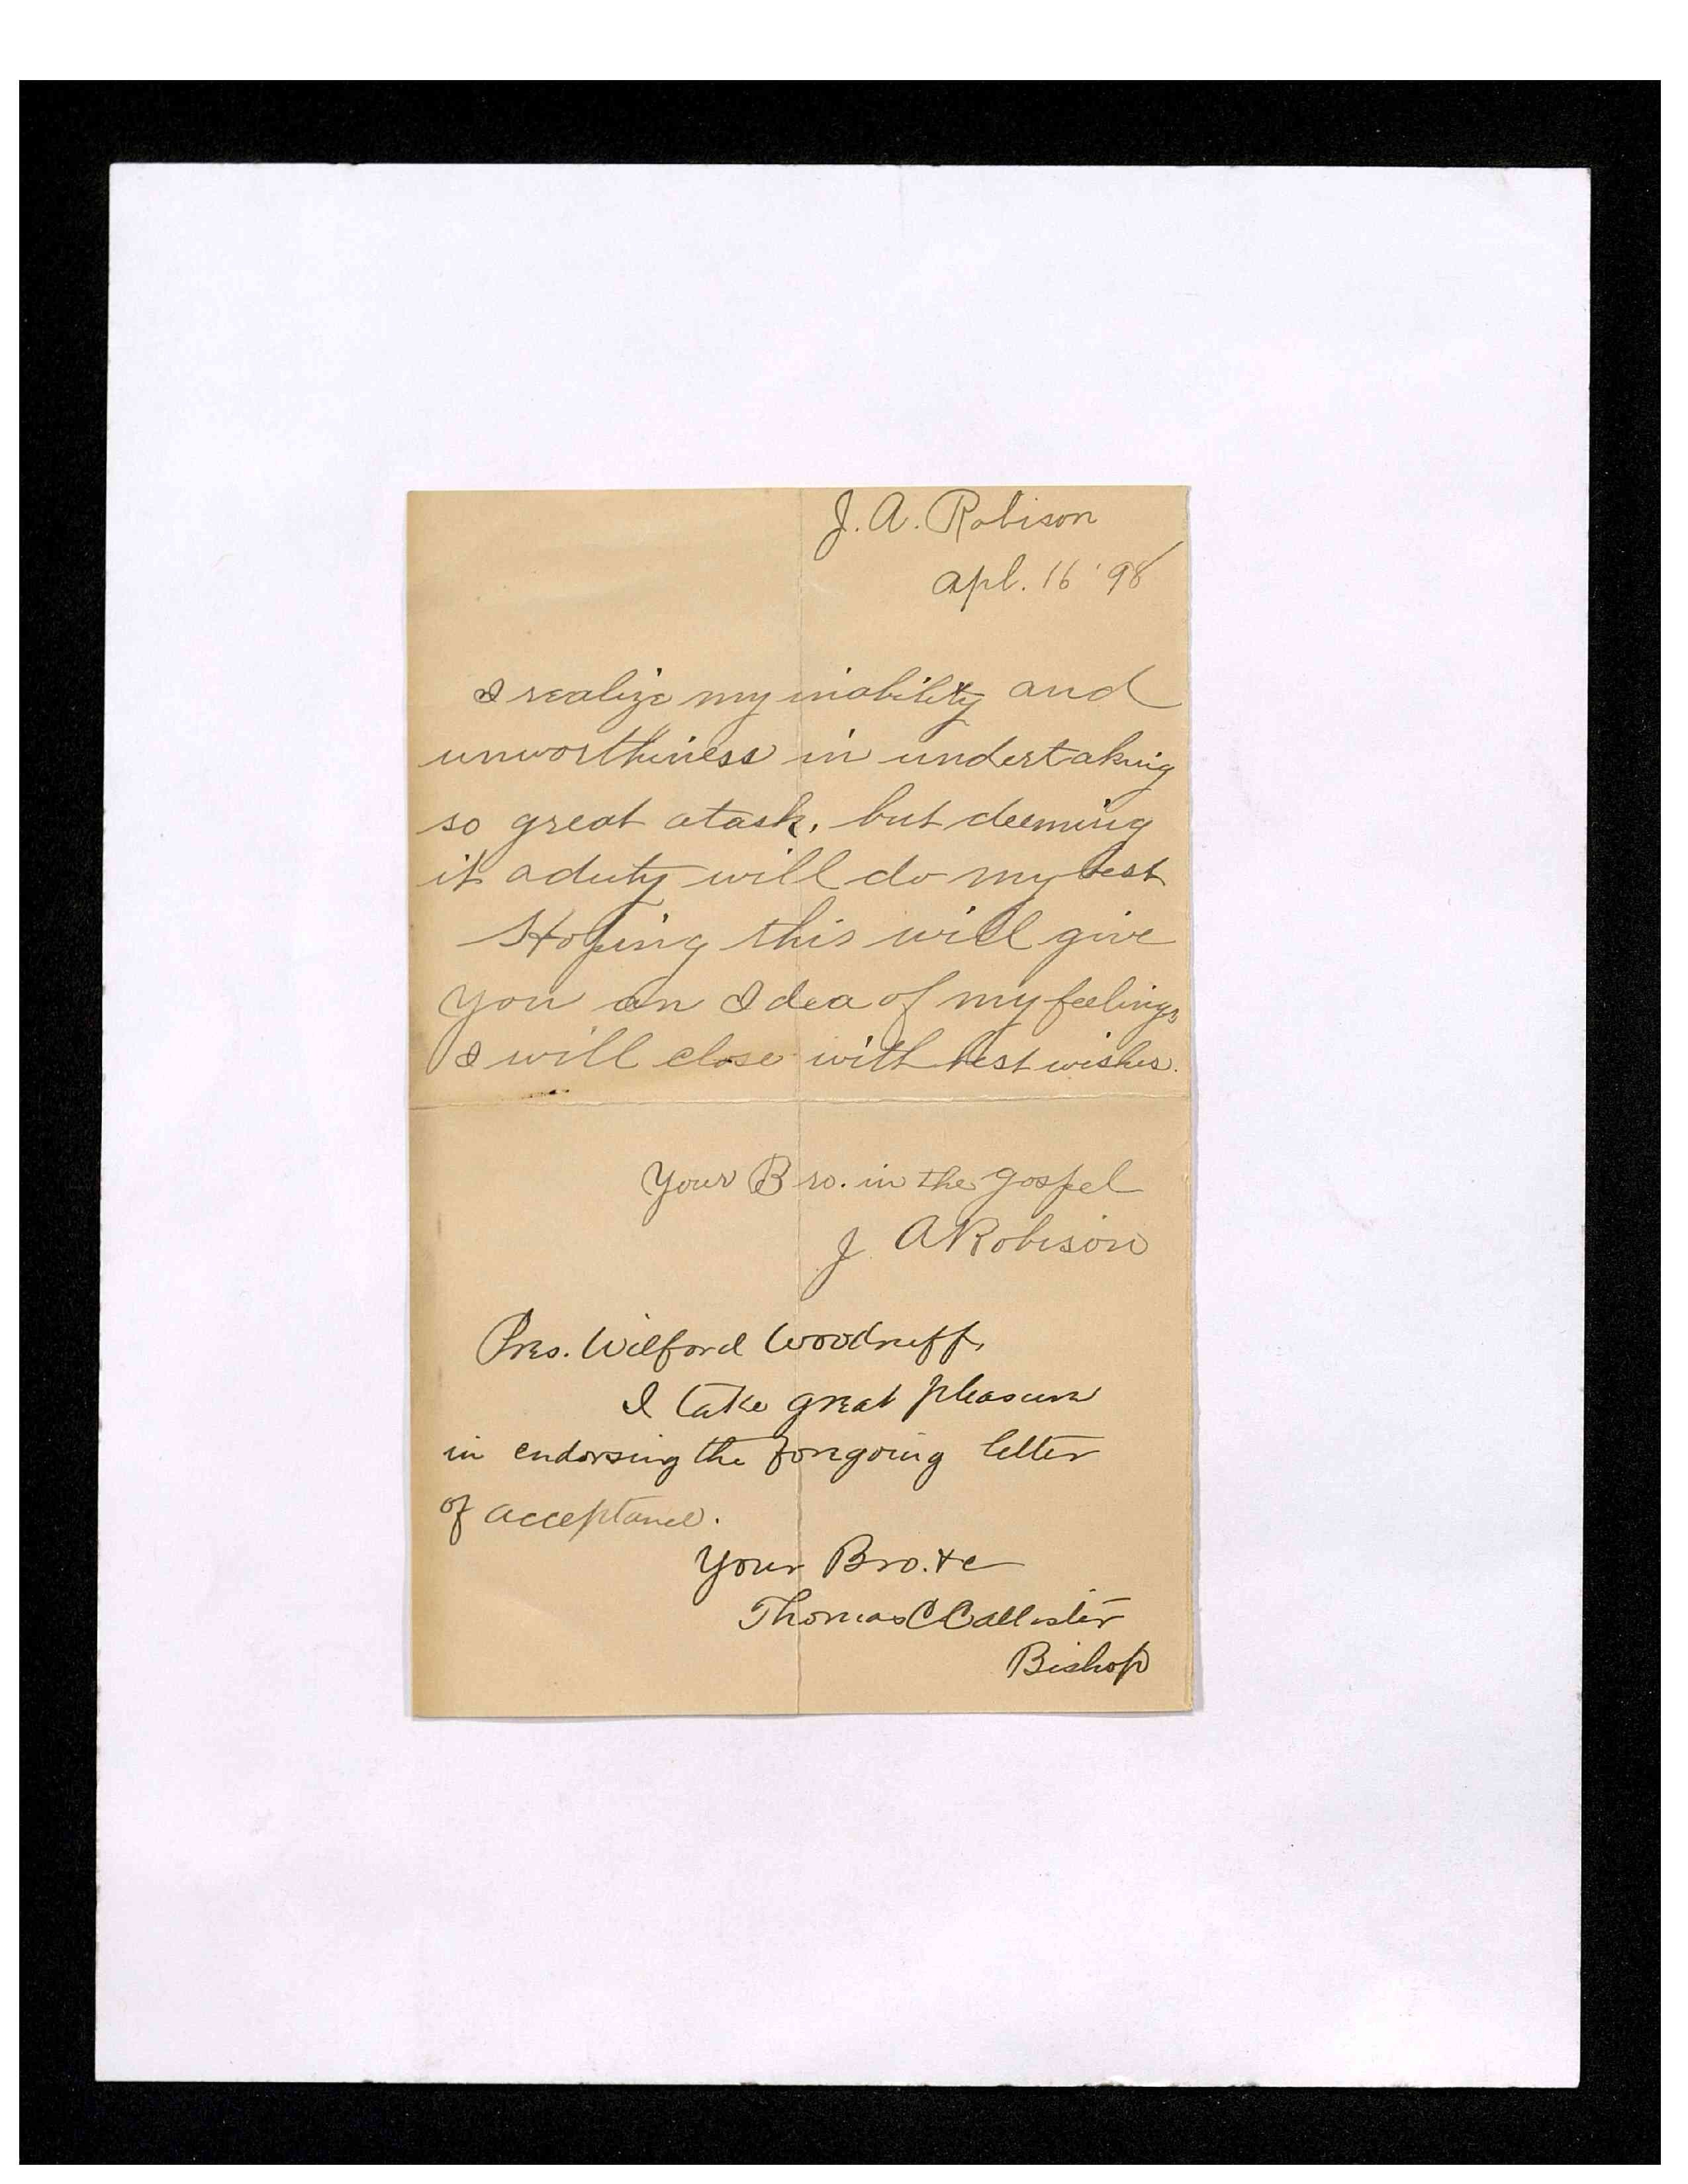 J. A. Robison
apl. 16 '98
I realize my inability and
unworthiness in undertaking
so great a task, but deeming
it a duty will do my best
Hoping this will give
you an Idea of my feelings
I will close with best wishes.
Your Bro. in the gospel
J A Robison
Pres. Wilford Woodruff,
I take great pleasure
in endorsing the foregoing letter
of acceptance.
Your Bro. &c
Thomas C Callister
Bishop